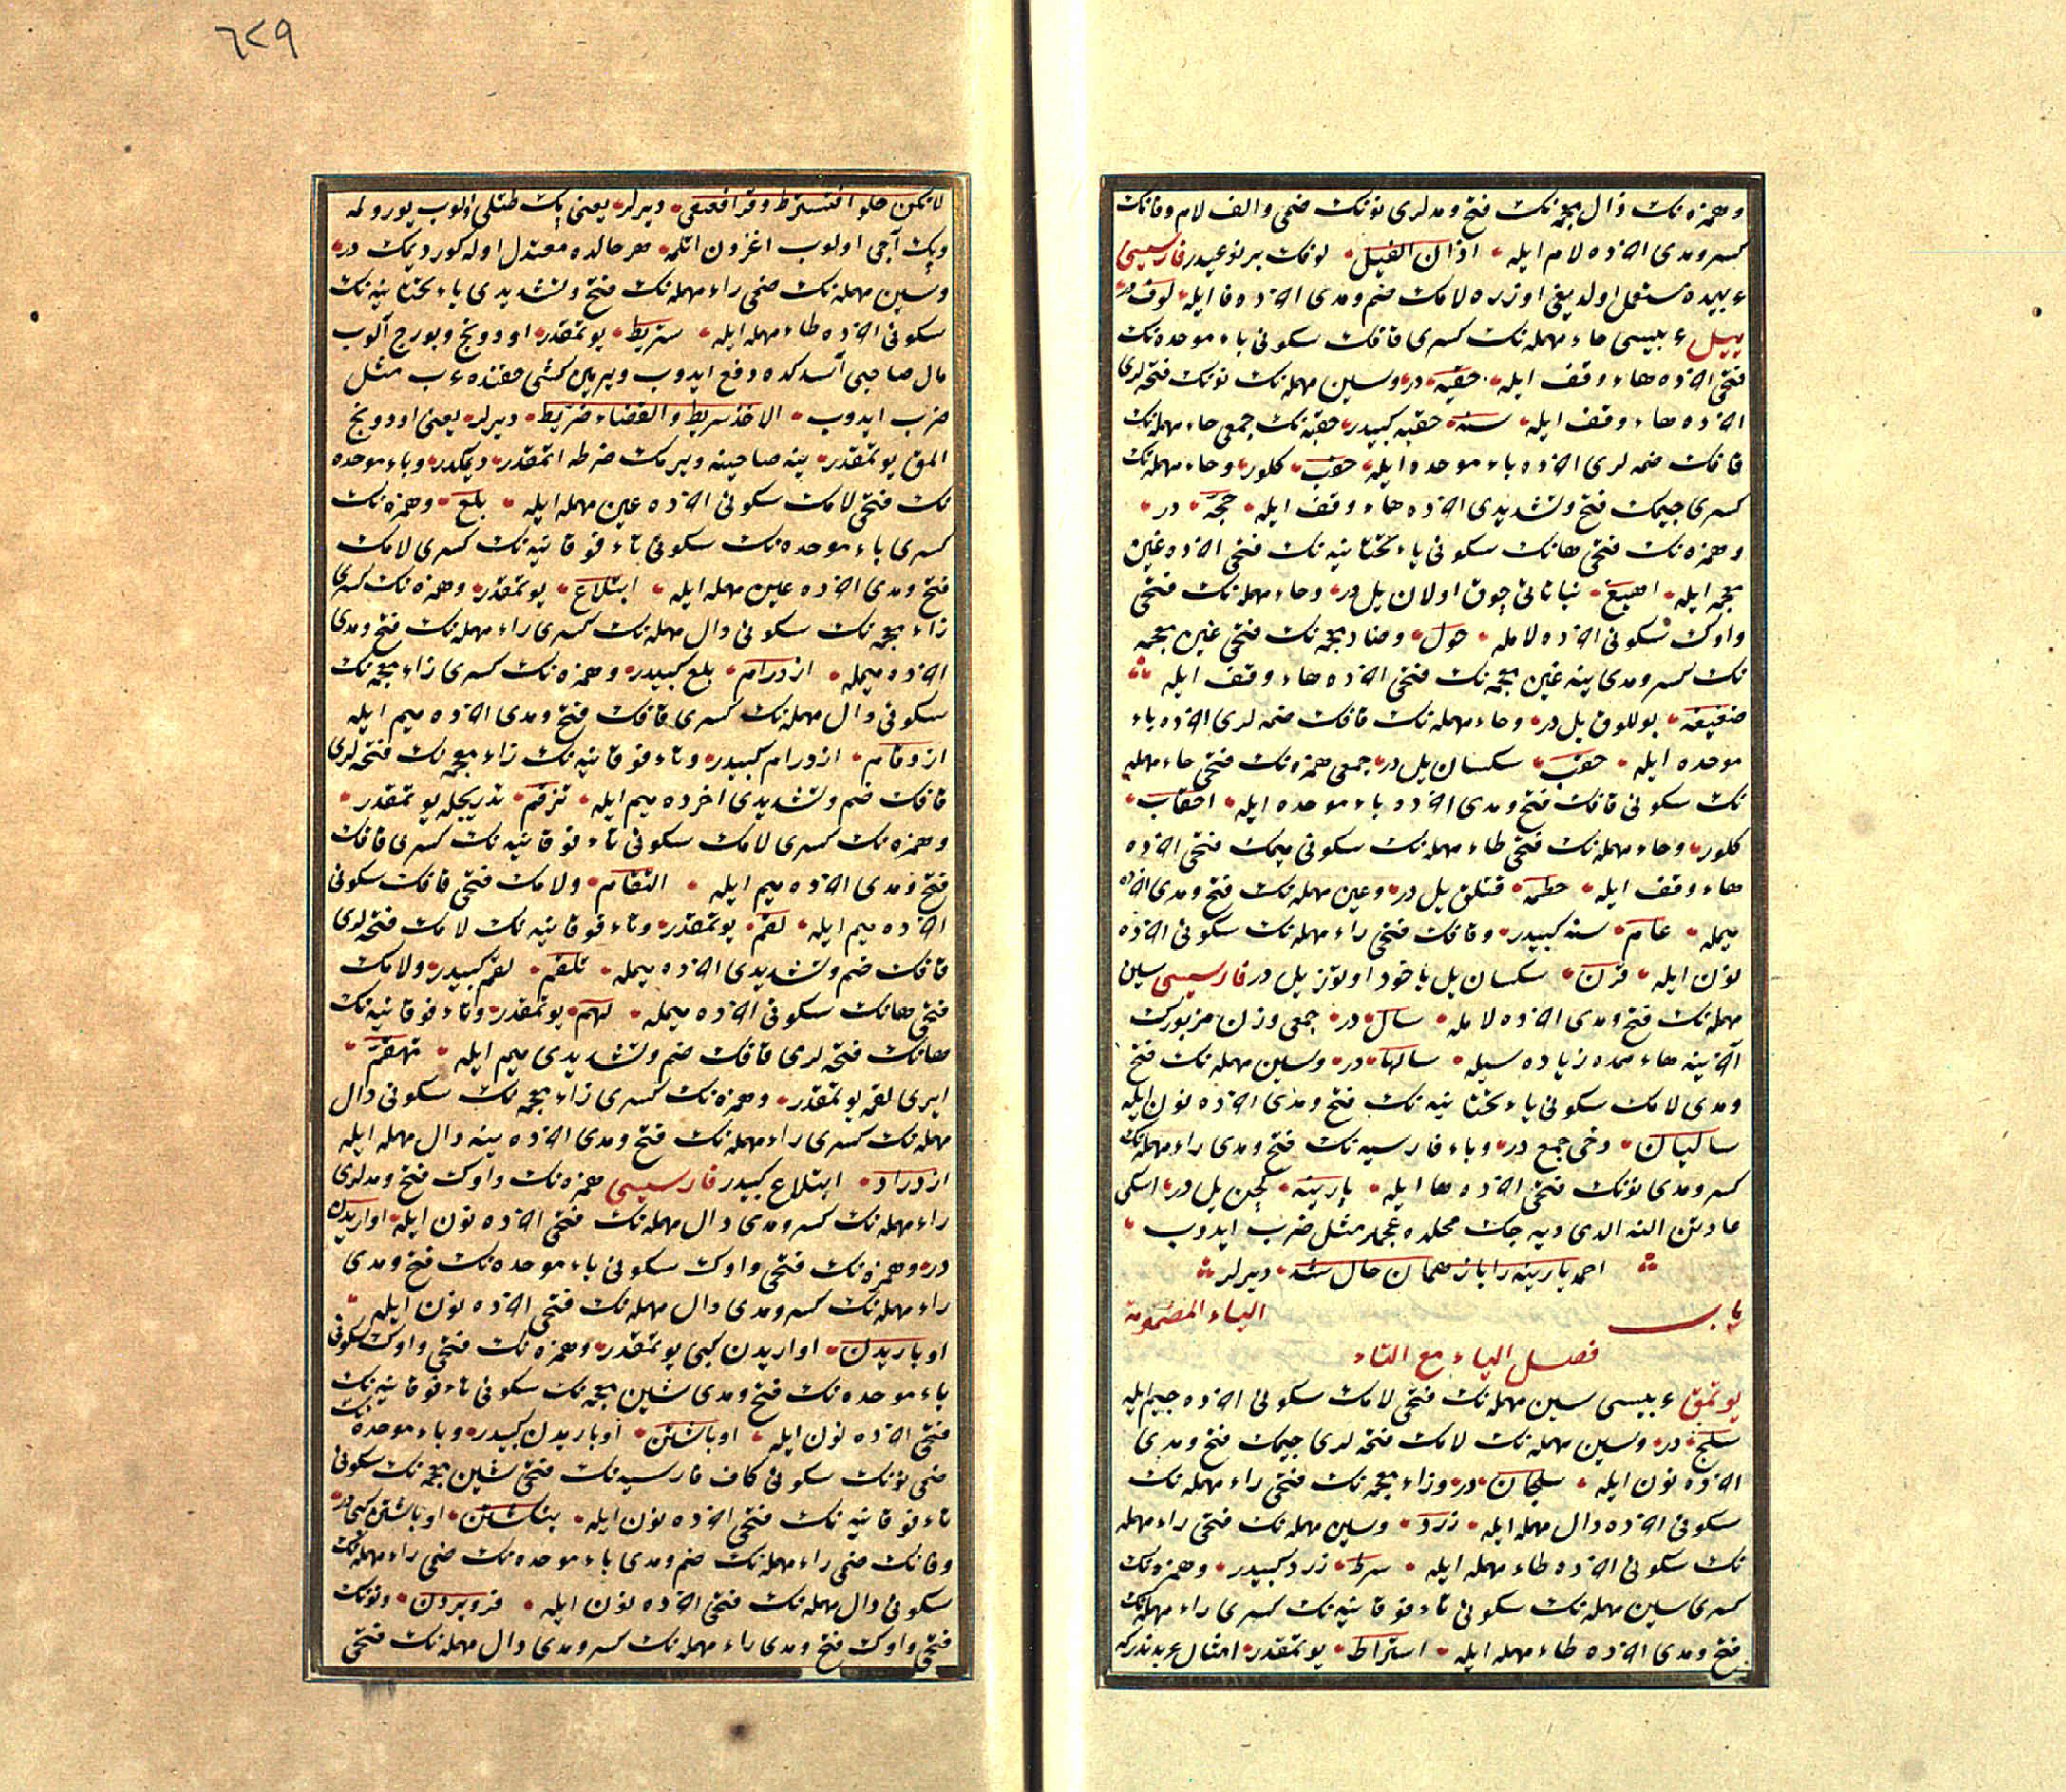 وهمزه نك ذال معجمه نك فتح ومدلرى نونك ضمى والف لام وفانك
كسر ومدى اخرده لام ايله اذان الفيل لوفك بر نوعيدر فارسيسى
عربيده مستعمل اولديغى اوزره لامك ضم ومدى اخرده فا ايله لوف در
ييل عربيسى حاء مهمله نك كسرى قافك سكونى باء موحده نك
فتحى اخرده هاء وقف ايله حقبه در وسين مهمله نك نونك فتحه لرى
اخرده هاء وقف ايله سنه حقبه كبيدر حقبه نك جمعى حاء مهمله نك
قافك ضمه لرى اخرده باء موحده ايله حقب كلور وحاء مهمله نك
كسرى جيمك فتح وتشديدى اخرده هاء وقف ايله حجّة در
وهمزه نك فتحى هانك سكونى ياء تحتانيه نك فتحى اخرده غين
معجمه ايله اهيغ نباتاتى چوق اولان ييل در وحاء مهمله نك فتحى
واوك سكونى اخرده لامله حول وضاد معجمه نك فتحى غين معجمه
نك كسر ومدى ينه غين معجمه نك فتحى اخرده هاء وقف ايله
ضغيغه بوللوق ييل در وحاء مهمله نك قافك ضمه لرى اخرده باء
موحده ايله حقب سكسان ييل در جمعى همزه نك فتحى حاء مهمله
نك سكونى قافك فتح ومدى اخرده باء موحده ايله احقاب
كلور وحاء مهمله نك فتحى طاء مهمله نك سكونى ميمك فتحى اخرده
هاء وقف ايله حطمه قتلق ييل در وعين مهمله نك فتح ومدى اخرده
ميمله عام سنه كبيدر وقافك فتحى راء مهمله نك سكونى اخرده
نون ايله قرن سكسان ييل ياخود اوتوز ييل در فارسيسى سين
مهمله نك فتح ومدى اخرده لامله سال در جمعى وزن مزبورك
آخرينه هاء ممده زياده سيله سالها در وسين مهمله نك فتح
ومدى لامك سكونى ياء تحتانيه نك فتح ومدى اخرده نون ايله
ساليان دخى جمع در وباء فارسيه نك فتح ومدى راء مهمله نك
كسر ومدى نونك فتحى اخرده ها ايله پارينه كچن ييل در اسكى
عادتن الندى ديه جك محلده عجملر مثل ضرب ايدوب
احمد پارينه را باز همان حال شد ديرلر
باب الياء المضمومة
فصل الياء مع التاء
يوتمق عربيسى سين مهمله نك فتحى لامك سكونى اخرده جيم ايله
سلج در وسين مهمله نك لامك فتحه لرى جيمك فتح ومدى
اخرده نون ايله سلجان در وزاء معجمه نك فتحى راء مهمله نك
سكونى اخرده دال مهمله ايله زرد وسين مهمله نك فتحى راء مهمله
نك سكونى اخرده طاء مهمله ايله سرط زرد كبيدر وهمزه نك
كسرى سين مهمله نك سكونى تاء فوقانيه نك كسرى راء مهمله نك
فتح ومدى اخرده طاء مهمله ايله استراط يوتمقدر امثال عربدندركه
٦٢٩
لاتكن حلوا فتسترط و فتعقى ديرلر يعنى پك طتلى اولوب يورولمه
وپك آجى اولوب اغزون اتلمه هر حالده معتدل اوله كور ديمك در
وسين مهمله نك ضمى راء مهمله نك فتح وتشديدى ياء تحتانيه نك
سكونى اخرده طاء مهمله ايله سرّيط يوتمقدر اودونج وبورج آلوب
مال صاحبى استدكده دفع ايدوب ويرمين كشى حقنده عرب مثل
ضرب ايدوب الاخذ سريط والقضاء ضريط ديرلر يعنى اودونج
المق يوتمقدر ينه صاحبنه ويرمك ضرطه اتمقدر ديمكدر وباء موحده
نك فتحى لامك سكونى اخرده عين مهمله ايله بلع وهمزه نك
كسرى باء موحده نك سكونى تاء فوقانيه نك كسرى لامك
فتح ومدى اخرده عين مهمله ايله ابتلاع يوتمقدر وهمزه نك كسرى
زاء معجمه نك سكونى دال مهمله نك كسرى راء مهمله نك فتح ومدى
اخرده ميمله ازدرام بلع كبيدر وهمزه نك كسرى زاء معجمه نك
سكونى دال مهمله نك كسرى قافك فتح ومدى اخرده ميم ايله
ازدقام ازدرام كبيدر وتاء فوقانيه نك زاء معجمه نك فتحه لرى
قافك ضم وتشديدى اخرده ميم ايله تزقم تدريجله يوتمقدر
وهمزه نك كسرى لامك سكونى تاء فوقانيه نك كسرى قافك
فتح ومدى اخرده ميم ايله التقام ولامك فتحى قافك سكونى
اخرده ميم ايله لقم يوتمقدر وتاء فوقانيه نك لامك فتحه لرى
قافك ضم وتشديدى اخرده ميمله تلقم لقم كبيدر ولامك
فتحى هانك سكونى اخرده ميمله لهم يوتمقدر وتاء فوقانيه نك
هانك فتحه لرى قافك ضم وتشديدى ميم ايله تهقم
ايرى لقمه يوتمقدر وهمزه نك كسرى زاء معجمه نك سكونى دال
مهمله نك كسرى راء مهمله نك فتح ومدى اخرده ينه دال مهمله ايله
ازدراد ابتلاع كبيدر فارسيسى همزه نك واوك فتح ومدلرى
راء مهمله نك كسر ومدى دال مهمله نك فتحى اخرده نون ايله اواريدن
در وهمزه نك فتحى واوك سكونى باء موحده نك فتح ومدى
راء مهمله نك كسر ومدى دال مهمله نك فتحى اخرده نون ايله
اوباريدن اواريدن كبى يوتمقدر وهمزه نك فتحى واوك سكونى
باء موحده نك فتح ومدى شين معجمه نك سكونى تاء فوقانيه نك
فتحى اخرده نون ايله اوباشتن اوباريدن كبيدر وباء موحده نك
ضمى نونك سكونى كاف فارسيه نك فتحى شين معجمه نك سكونى
تاء فوقانيه نك فتحى اخرده نون ايله بنگشتن اوباشتن كبى در
وفانك ضمى راء مهمله نك ضم ومدى باء موحده نك ضمى راء مهمله نك
سكونى دال مهمله نك فتحى اخرده نون ايله فروبردن ونونك
فتحى واوك فتح ومدى راء مهمله نك كسر ومدى دال مهمله نك فتحى